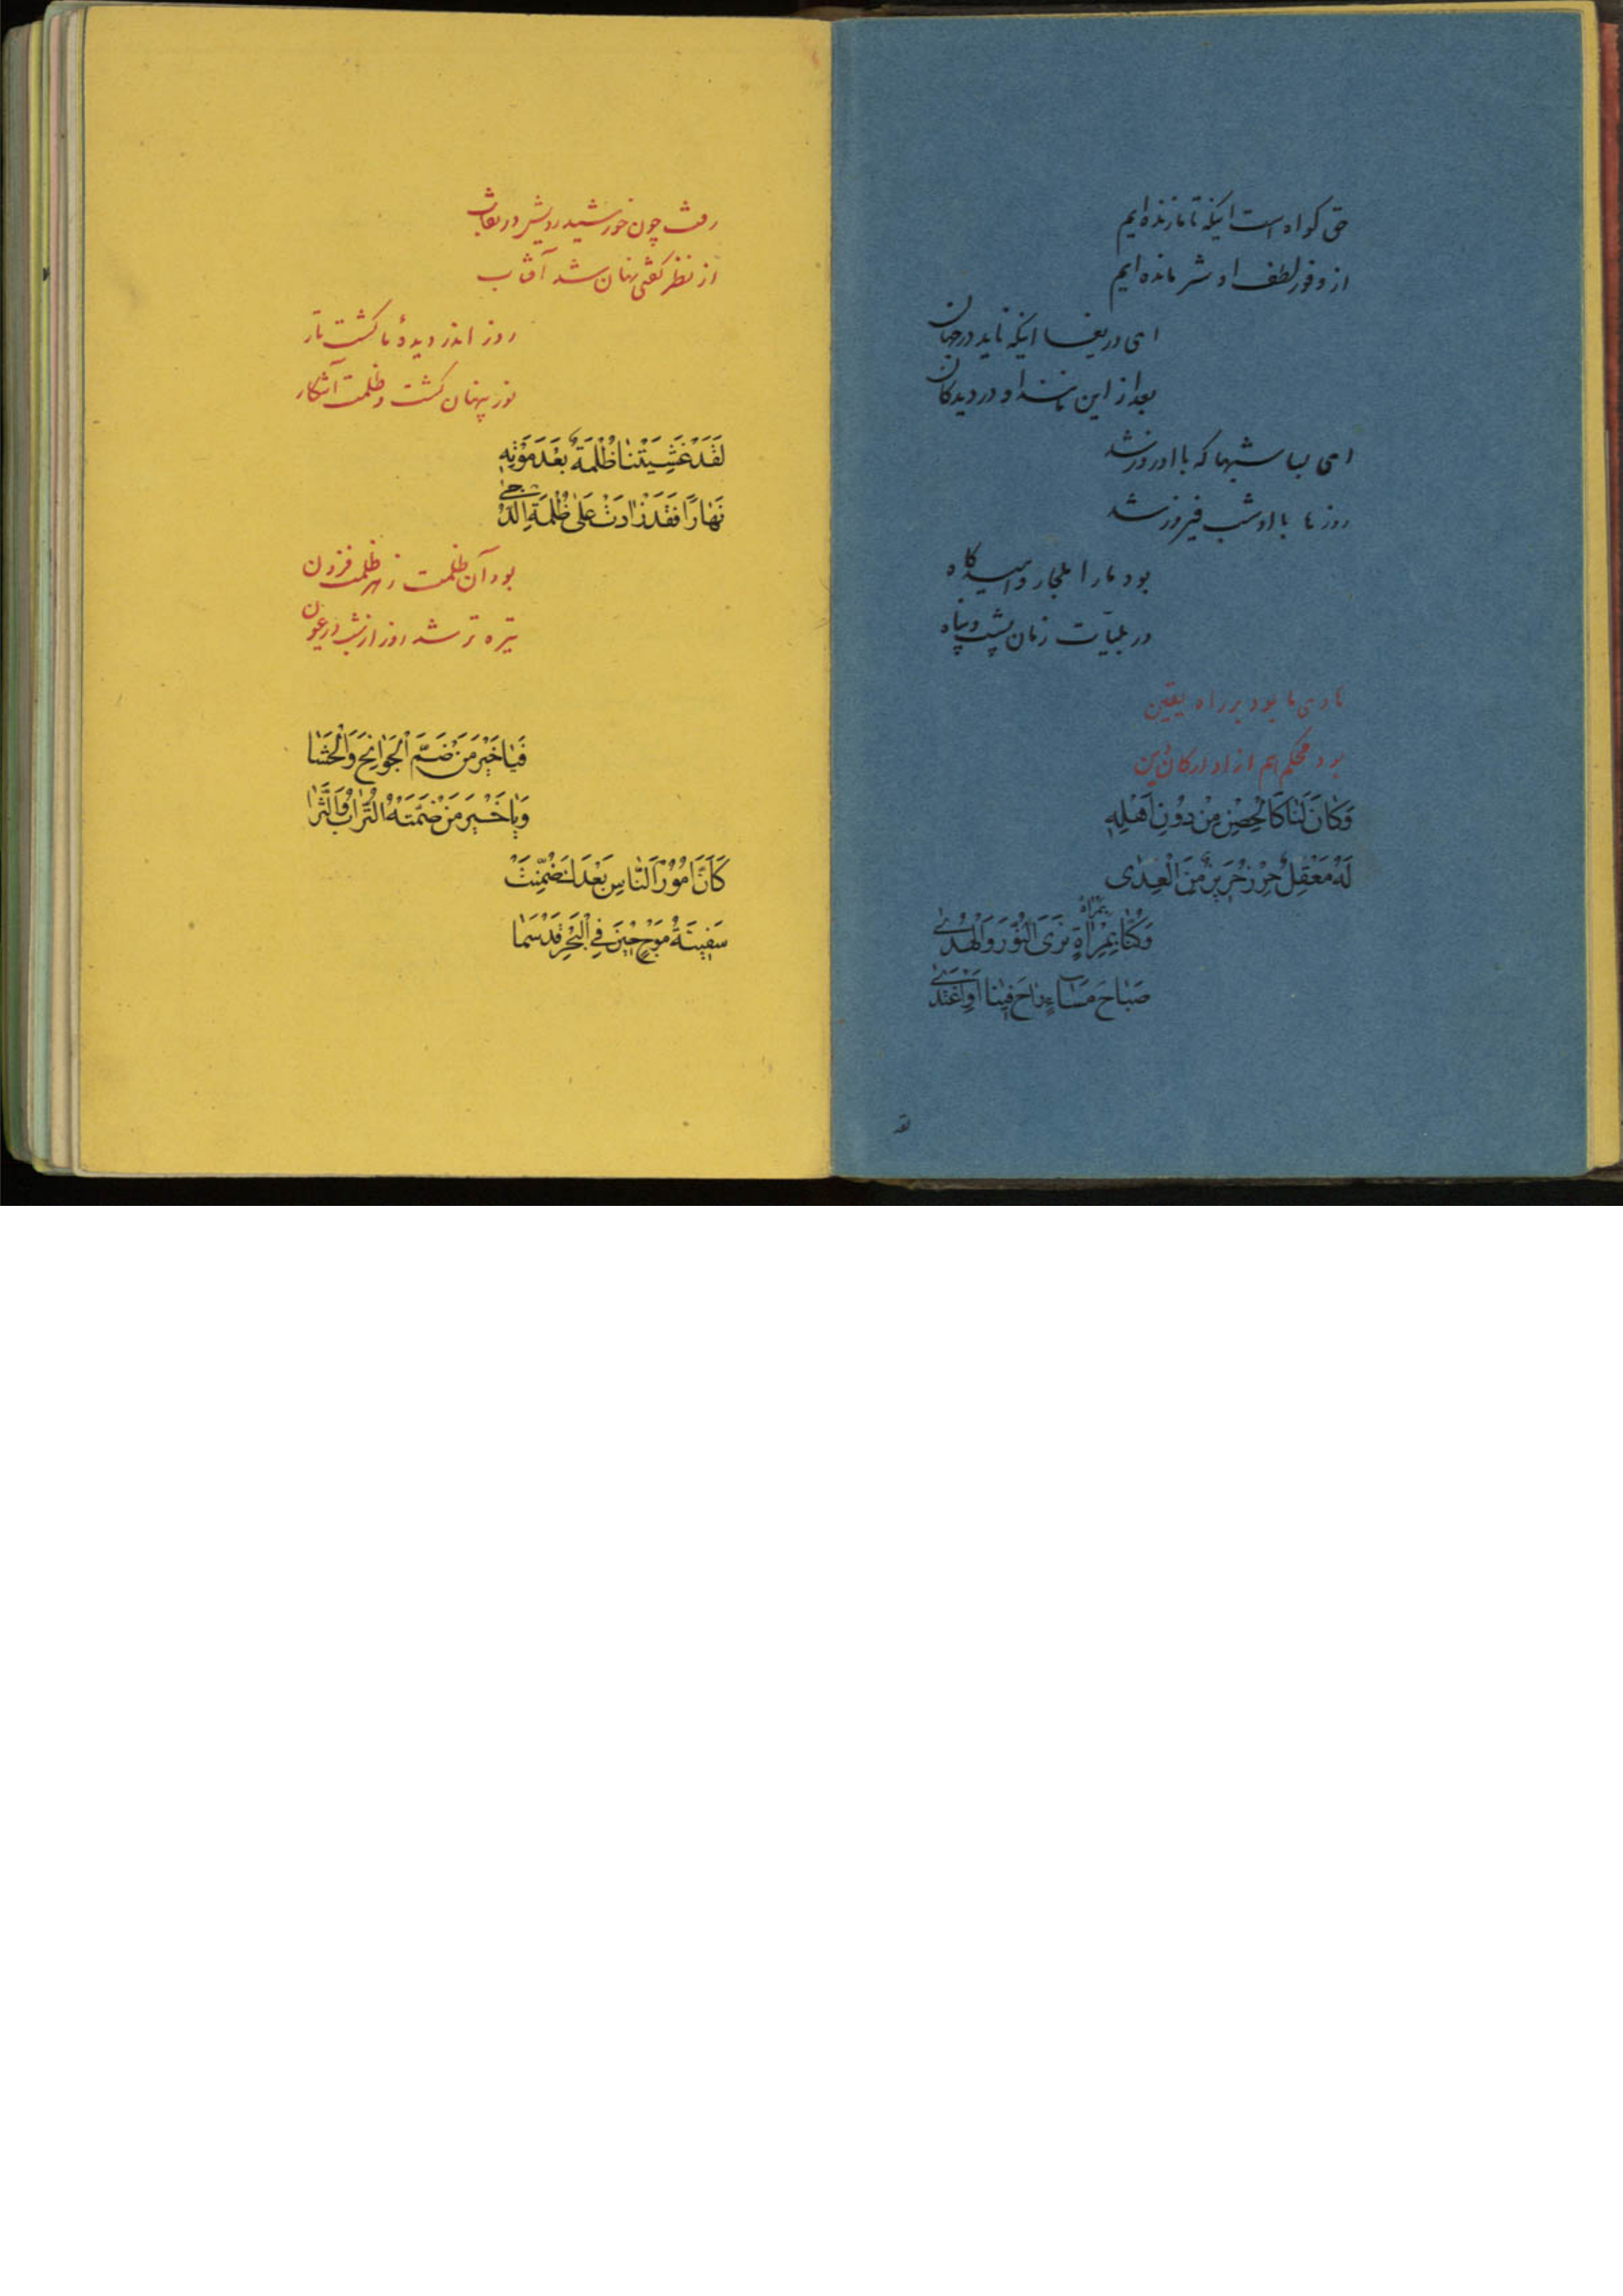 حق کواه است اینکه تا ما زنده‌ایم
از وفور لطف او شرمنده‌ایم
ای دریغا اینکه ناید در جهان
بعد از این مانند او در دیدکان
ای بسا شبها که با او روز شد
روز ما با او شب فیروز شد
بود ما را ملجأ و امیدکاه
در بلیّات زمان پشت و پناه
هادی ما بود بر راه یقین
بود محکم هم از او ارکان دین
وَكَانَ لَنَا كَالْحِصْنِ مِنْ دُونِ اَهْلِهِ
لَهُ مَعْقِلٌ حِرْزٌ حَرِيزٌ مِنَ الْعِدٰى
وَكُنَّا بِمِرْاٰةٍ نَرَى النُّورَ وَالْهُدٰى
بمرآه
صَبَاحَ مَسَاءٍ رَاحَ فِينَا اَوِ اغْتَدٰى
لقد
رفت چون خورشید رویش در نقاب
از نظر کفتی نهان شد آفتاب
روز اندر دیدهٔ ما کشت تار
نور پنهان کشت و ظلمت آشکار
لَقَدْ غَشِيَتْنَا ظُلْمَةٌ بَعْدَ مَوْتِهِ
نَهَارًا فَقَدْ زَادَتْ عَلٰى ظُلْمَةِ الدُّجٰى
بود آن ظلمت ز هر ظلمت فزون
تیره تر شد روز از شب در عیون
فَيَا خَيْرَ مَنْ ضَمَّ الْجَوَانِحَ وَالْحَشَا
وَيَا خَيْرَ مَنْ ضَمَّتْهُ التُّرَابُ وَالثَّرَا
كَاَنَّ اُمُورَ النَّاسِ بَعْدَكَ ضُمِّنَتْ
سَفِينَةُ مَوْجٍ حِينَ فِي الْبَحْرِ قَدْ سَمَا